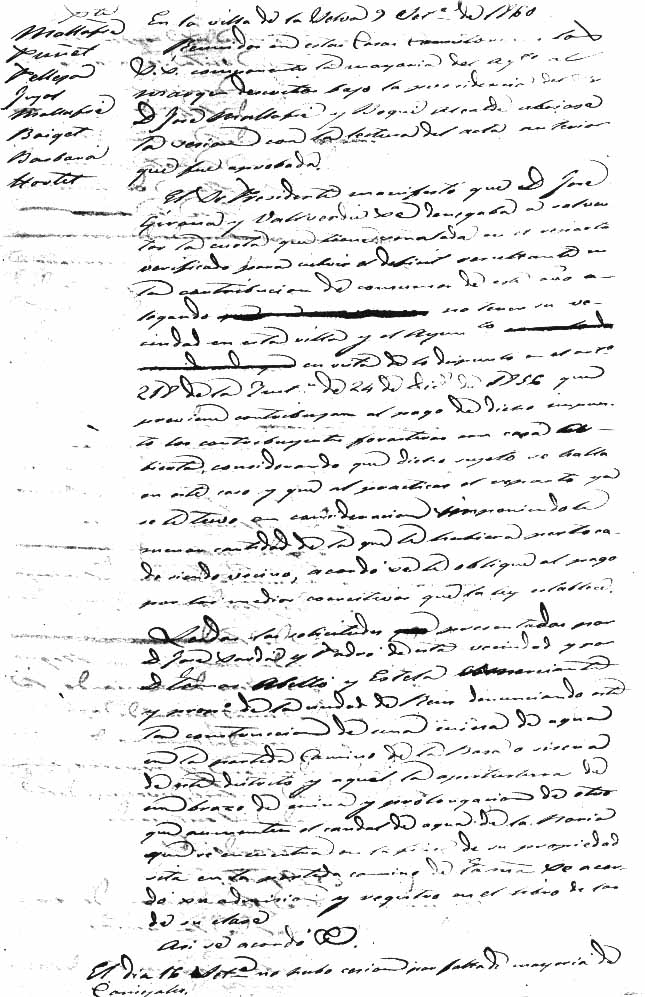 Pste
Mallafré
Puñet
Pellejá
Jujol
Mallafré
Baiget
Barbará
Hortet
En la villa de la Selva 9 Setre de 1860
Reunidos en estas Casas los
S.S. componentes la mayoria del Aynto al
margen descritos bajo la presidencia del Sr
D José Mallafré y Roqué Alcalde abriose
la sesion con la lectura del acta anterior
que fue aprobada.
El Sr Presidente manifestó que D José
Girona y Vallverdú se denegaba a solven
tar la cuota que tiene señalada en el reparto
verificado para cubrir el deficit resultante en
la contribucion de consumos de este año a-
legando no tener su ve-
cindad en esta villa y el Ayunto
en vista de lo dispuesto en el arto
218 de la Inston de 24 de Dice de 1856 que
previene contribuyan al pago de dicho impues-
to los contribuyentes forasteros con casa
bierta, considerando que dicho sujeto se halla
en este caso y que al practicar el reparto ya
se le tuvo en consideracion imponiendole
menor cantidad de la que le hubiera pertoca-
do siendo vecino, acordó se le oblique al pago
por los medios coercitivos que la ley establece.
Leidas las solicitudes presentadas por
D José y Padró de esta vecindad y por
D Abelló y Estela comerciante
y propo de la ciudad de Reus denunciando este
la construccion de una mina de agua
en la partida Camino de la Basa o
de este distrito y aquel la apertura de
un brazo de mina y prolongacion de otro
que aumenten el caudal de agua de la Noria
que se encuentra en la finca de su propiedad
sita en la partida camino de se acor-
dó su admision y registro en el libro de los
de su clase
Asi se acordó.
El dia 16 Setre no hubo cesion por falta de mayoria de
Concejales.